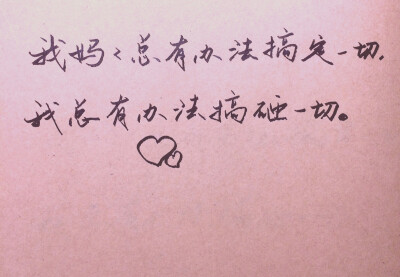 我妈々总有办法搞定一切,
我总有办法搞砸一切。